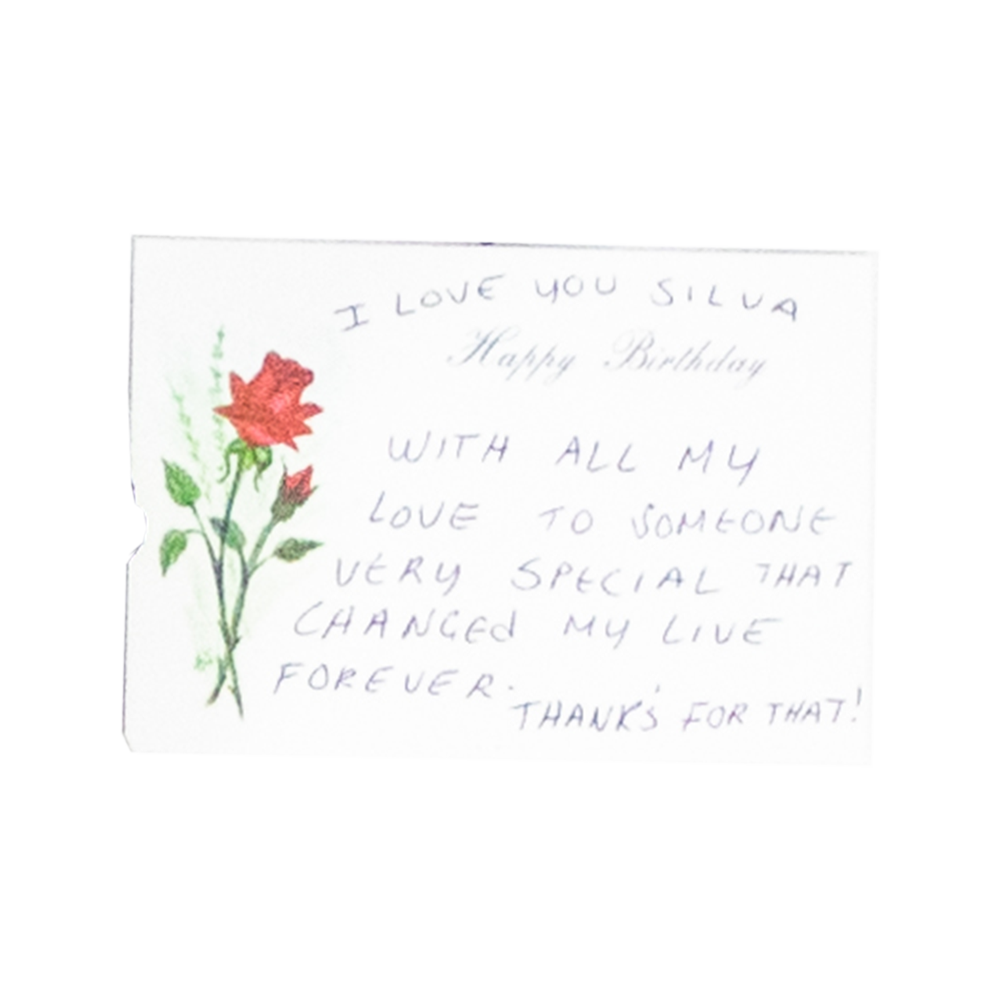 I LOVE YOU SILVA
Happy Birthday
WITH ALL MY
LOVE TO SOMEONE
VERY SPECIAL THAT
CHANGEd MY LIVE
FOREVER.
THANK'S FOR THAT!